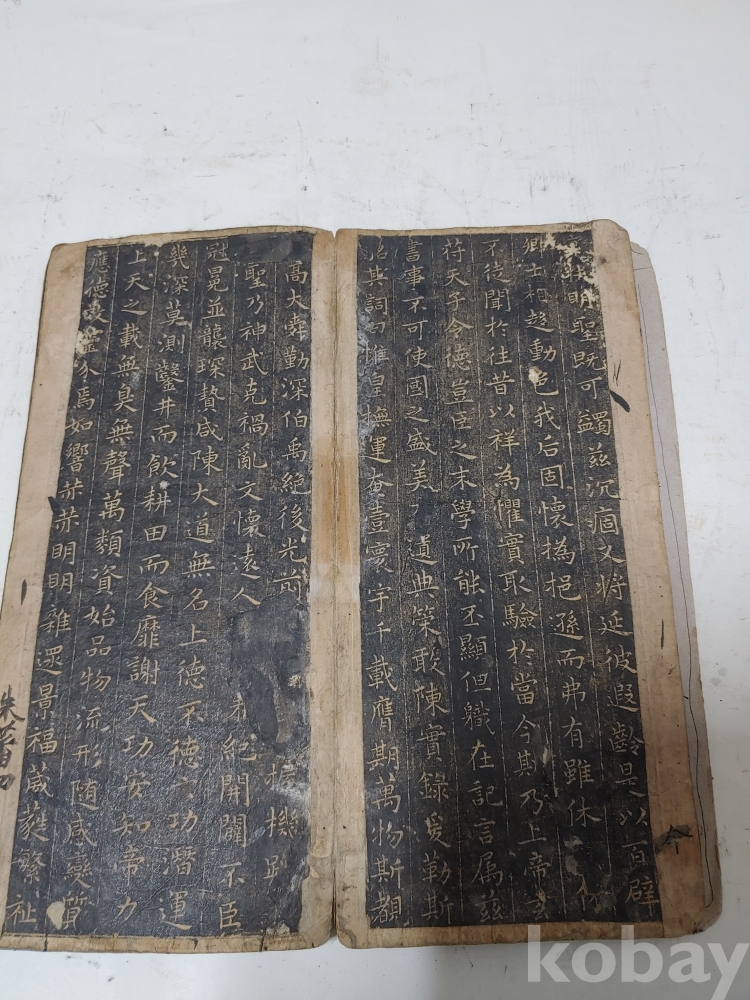 明聖既可蠲茲沉痼又將延彼遐齡是以百辟
卿士相趍動色我后固懷撝挹而弗有雖休
不徒聞於往昔以祥為懼實取驗於當今其乃上帝玄
符天子令德豈臣之末學所能丕顯但職在記言属茲
書事不可使國之盛美遺典策敢陳實錄爰勒斯
銘其詞曰惟皇撫運奄壹寰宇千載膺期萬物斯覩
高大舜勤深伯禹絕後光前握機蹈
聖乃神武克禍亂文懷遠人未紀開闢不臣
冠冕並襲琛贄咸陳大道無名上德不德功潛運
幾深莫測鑿井而飲耕田而食靡謝天功安知帝力
上天之載無臭無聲萬類資始品物流形随感變質
應德效靈介焉如響赫赫明明雜遝景福葳蕤繁祉
kobay